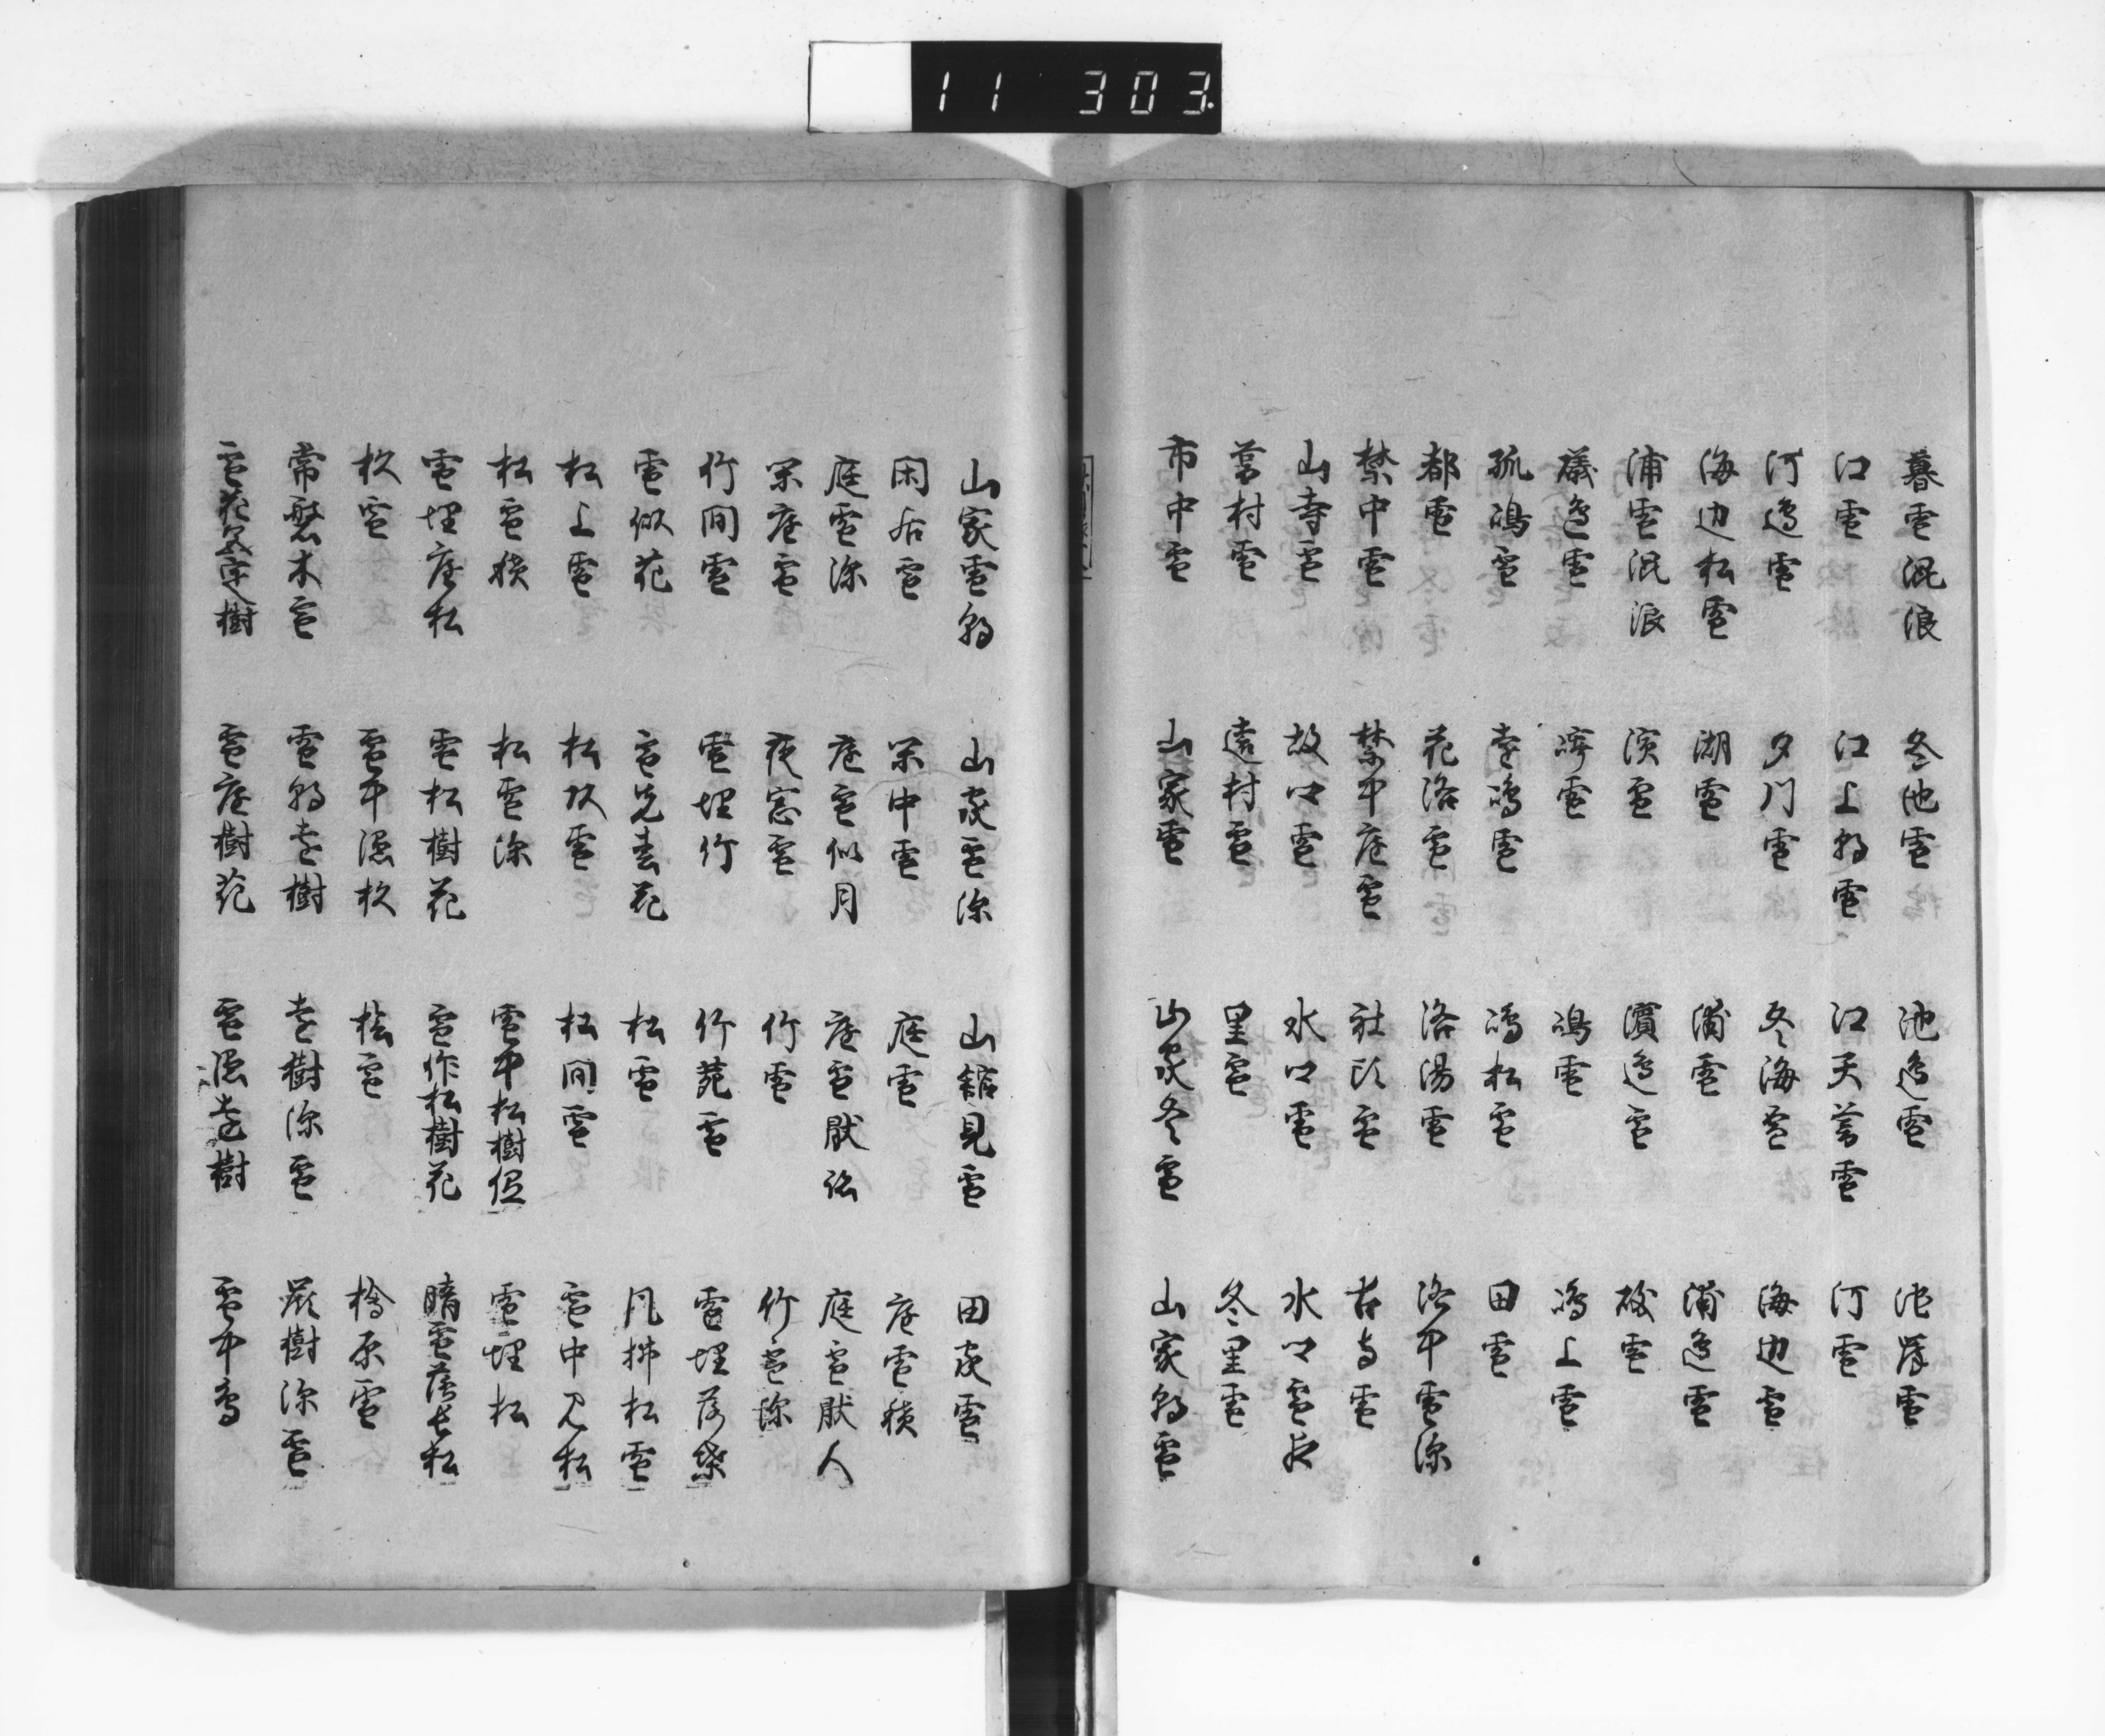 11 303
暮雪混浪 冬池雪 池邊雪 池岸雪
江雪 江上朝雪 江天暮雪 河雪
河邊雪 夕川雪 冬海雪 海辺雪
海辺松雪 湖雪 浦雪 浦邊雪
浦雪混浪 浜雪 濱邊雪 礒雪
礒邊雪 嶋雪 嶋上雪
孤嶋雪 遠嶋雪 嶋松雪 田雪
都雪 花洛雪 洛陽雪 洛中雪深
禁中雪 禁中庭雪 社頭雪 古寺雪
山寺雪 故郷雪 水郷雪 水郷雪夜
暮村雪 遠村雪 里雪 冬里雪
市中雪 山家雪 山家冬雪 山家朝雪
山家雪朝 山家雪深 山館見雪 田家雪
閑居雪 閑中雪 庭雪 庭雪積
庭雪深 庭雪似月 庭雪厭跡 庭雪厭人
閑庭雪 夜窓雪 竹雪 竹雪深
竹間雪 雪埋竹 竹苑雪 雪埋落葉
雪似花 雪先春花 松雪 風拂松雪
松上雪 松間雪 雪中見松
松雪積 松雪深 雪中松樹低 雪埋松
雪埋庭松 雪松樹花 雪作松樹花 晴雪落長松
杉雪 雪中隠杉 桧雪 檜原雪
常磐木雪 雪朝遠樹 遠樹深雪 嶺樹深雪
雪庭樹花 雪隠遠樹 雪中鳥